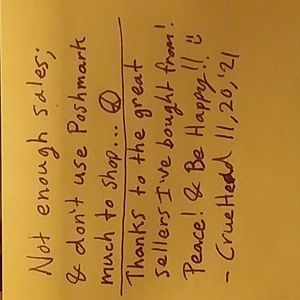 Not enough sales;
& don't use Poshmark
much to shop... ☹
Thanks to the great
sellers I've bought from!
Peace! & Be Happy!! ☺
- CrueHead 11,20,'21